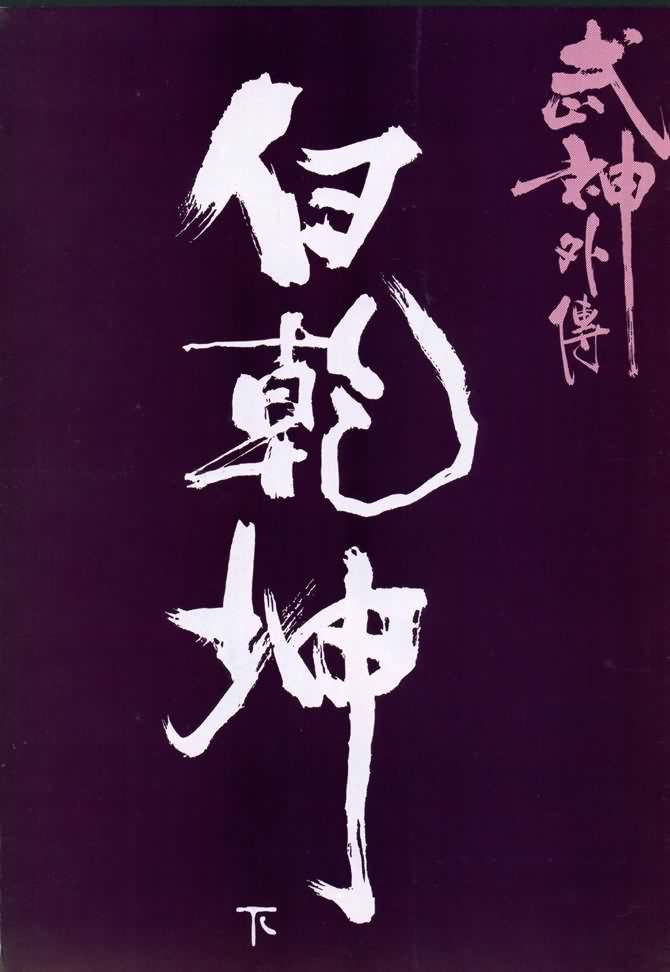 武神外傳
白乾坤
下